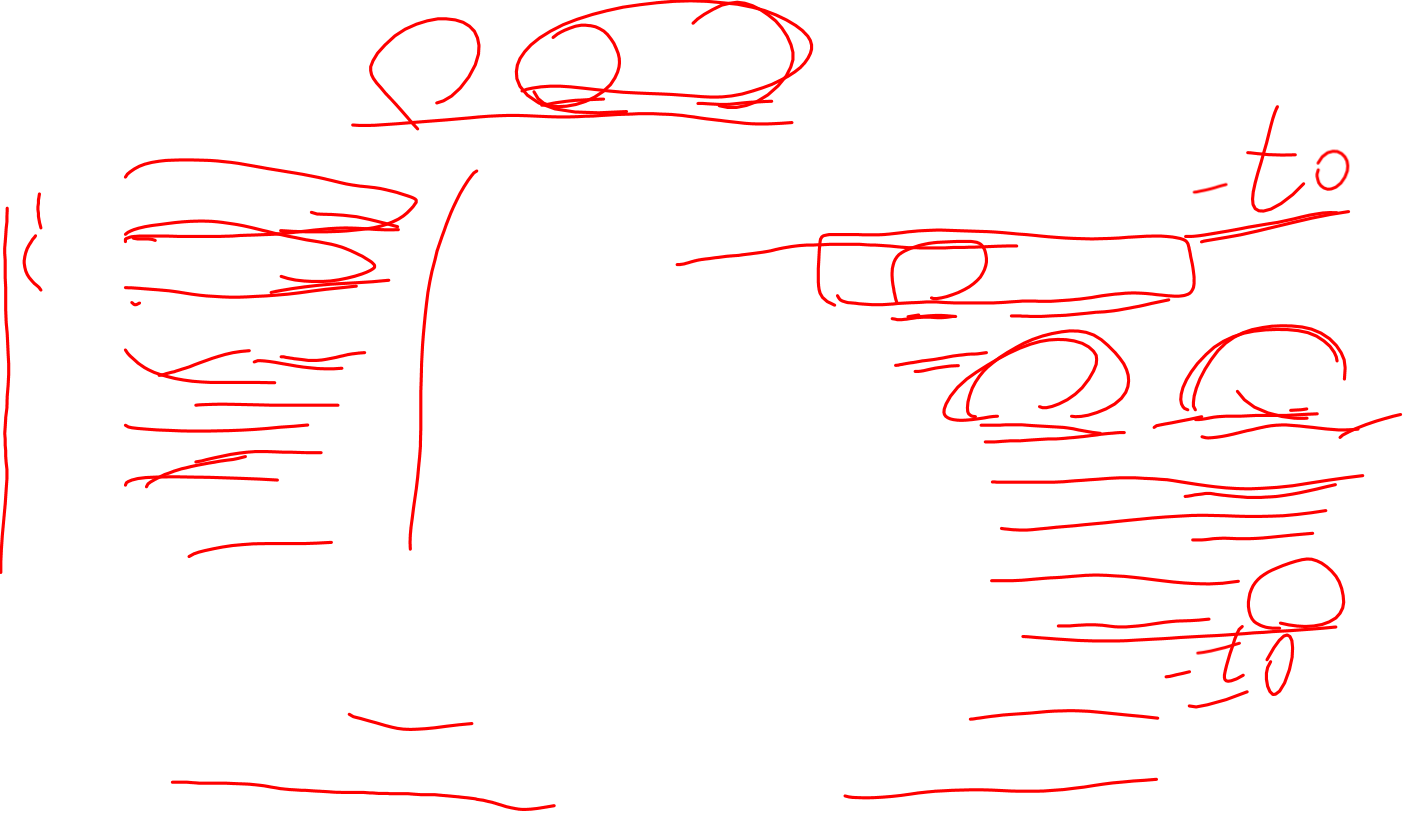 - to
- to